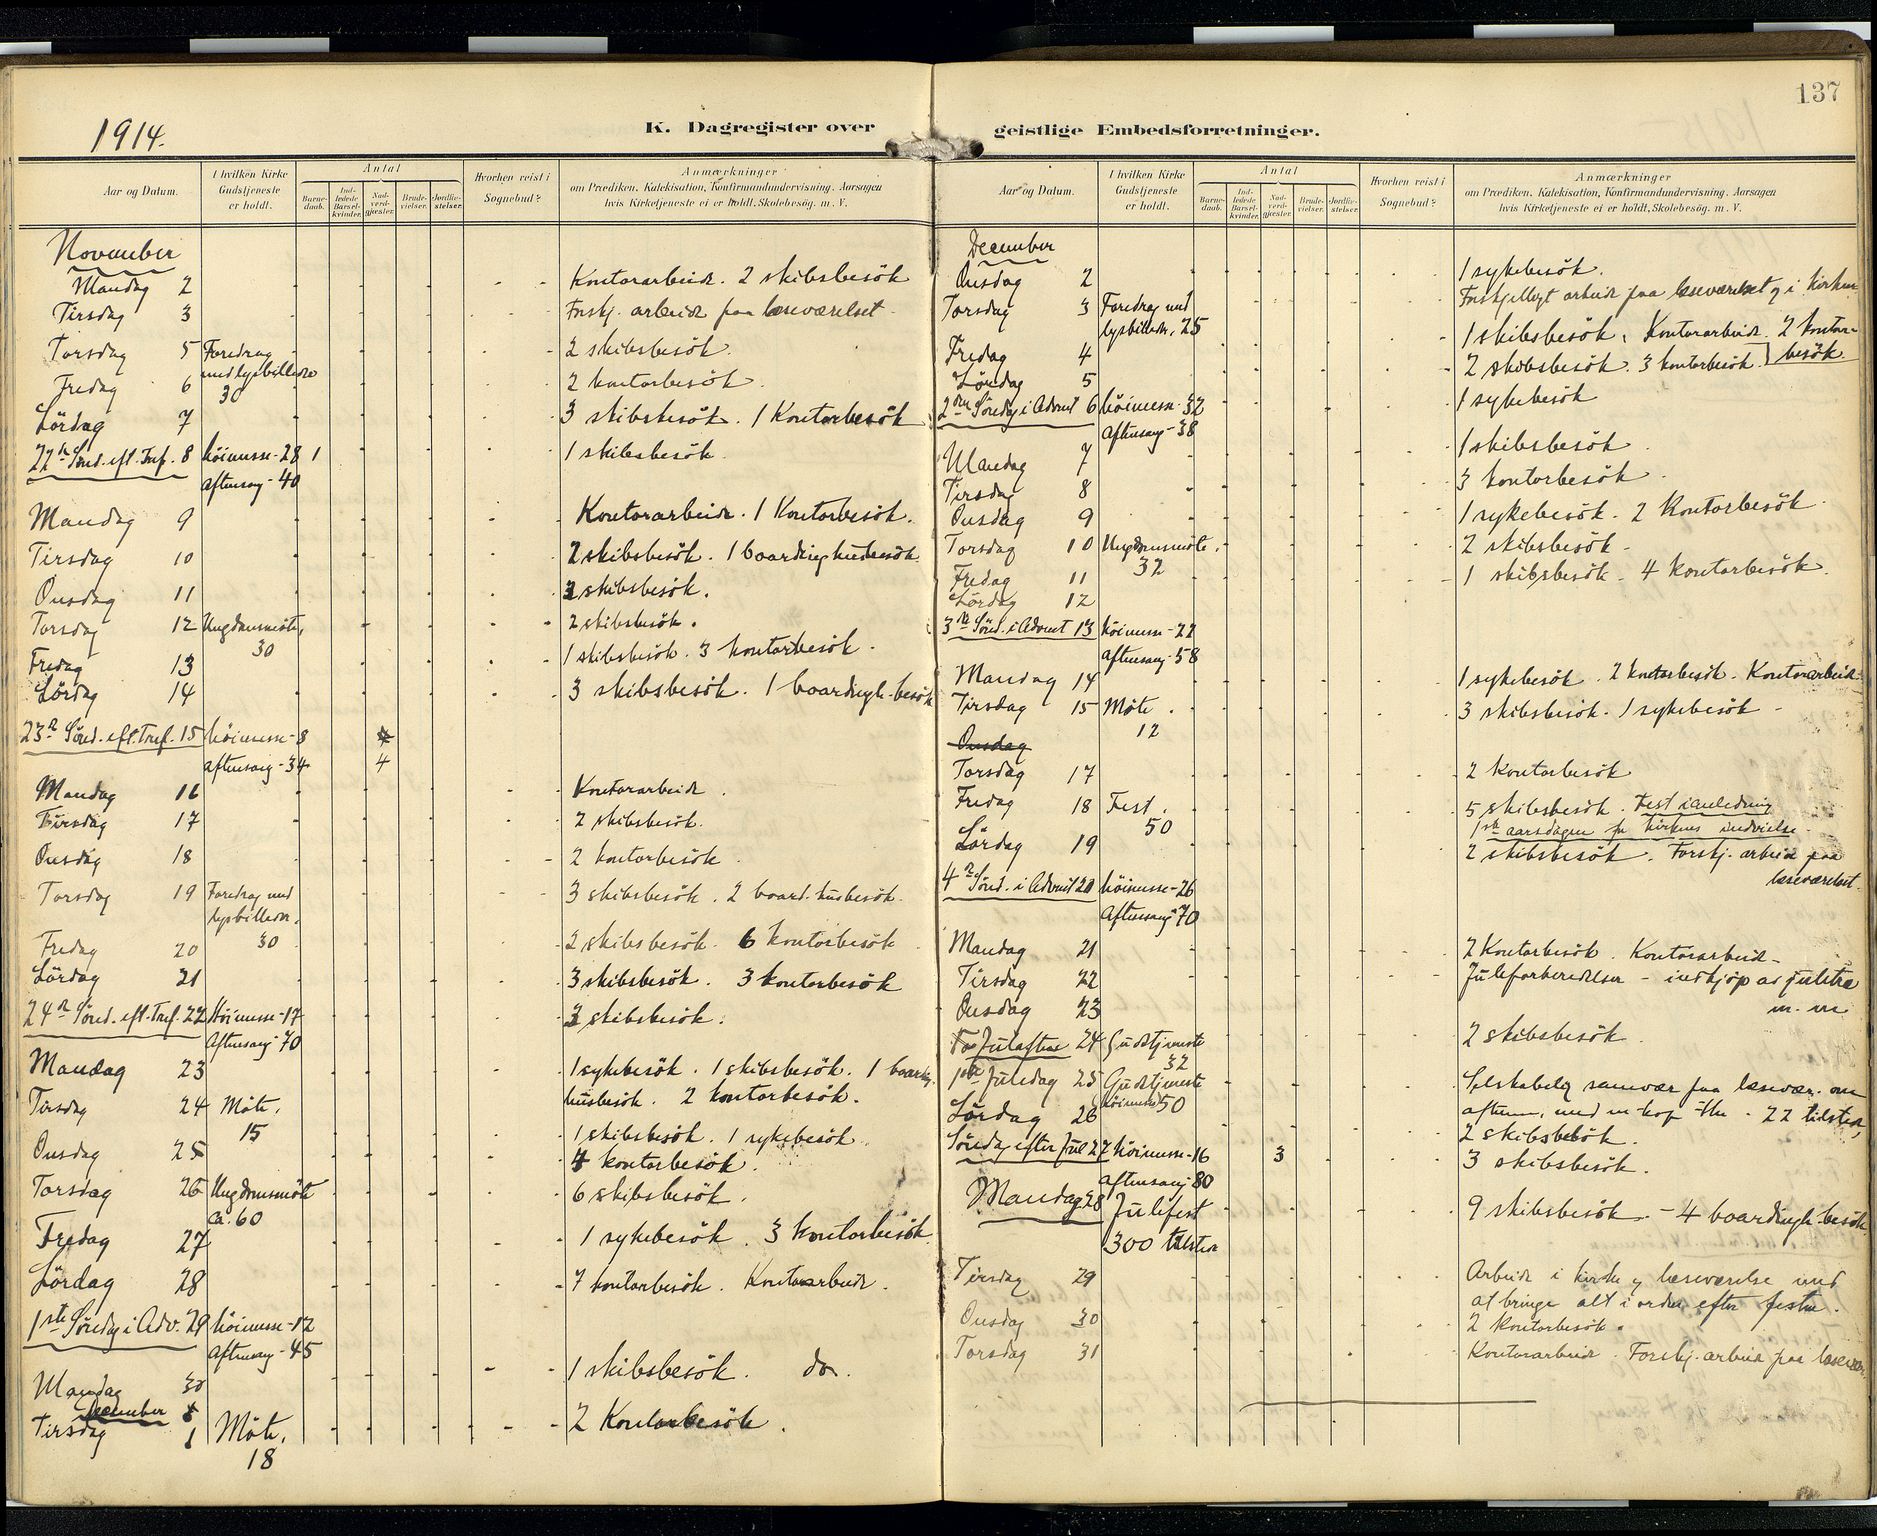 137
1914.
K. Dagregister over
geistlige Embedsforretninger.
Aar og Datum.
I hvilken Kirke
Gudstjeneste
er holdt.
Antal
Barne-
daab.
Ind-
ledede
Barsel-
kvinder.
Nad-
verd-
gjester.
Brude-
vielser.
Jordfæ-
stelser.
Hvorhen reist i
Sognebud?
Anmærkninger
om Prædiken, Katekisation, Konfirmandundervisning, Aarsagen
hvis Kirketjeneste ei er holdt, Skolebesøg. m. V.
November
Mandag 2 Kontorarbeide. 2 skibsbesök
Tirsdag 3 Forskj. arbeide paa læseværelset
Torsdag 5 Foredrag 2 skibsbesök.
med lysbilleder
Fredag 6 30 2 kontorbesök.
Lördag 7 3 skibsbesök. 1 Kontorbesök
22de Sönd. eft. Tref. 8 Höimesse-28 1 1 skibsbesök.
Aftensang-40
Mandag 9 Kontorarbeide. 1 Kontorbesök.
Tirsdag 10 2 skibsbesök. 1 boardinghusbesök.
Onsdag 11 2 skibsbesök.
Torsdag 12 Ungdomsmöte. 2 skibsbesök.
30
Fredag 13 1 skibsbesök. 3 kontorbesök.
Lördag 14 3 skibsbesök. 1 boardingh.besök
23de Sönd. eft. Tref. 15 Höimesse-8
Aftensang-34 4
Mandag 16 Kontorarbeide.
Tirsdag 17 2 skibsbesök.
Onsdag 18 2 kontorbesök.
Torsdag 19 Foredrag med 3 skibsbesök. 2 board.husbesök.
lysbilleder.
Fredag 20 30 2 skibsbesök. 6 kontorbesök
Lördag 21 3 skibsbesök. 3 kontorbesök
24de Sönd. eft. Tref. 22 Höimesse-17 skibsbesök.
Aftensang-70
Mandag 23 1 sykebesök. 1 skibsbesök. 1 boarding
husbesök. 2 kontorbesök.
Tirsdag 24 Möte.
15 1 skibsbesök. 1 sykebesök.
Onsdag 25 4 kontorbesök.
Torsdag 26 Ungdomsmöte 6 skibsbesök.
ca. 60
Fredag 27 1 sykebesök. 3 kontorbesök.
Lördag 28 7 kontorbesök. Kontorarbeide.
1ste Söndag i Adv. 29 Höimesse-12
Aftensang-45
Mandag 30 1 skibsbesök. do.
December
Tirsdag 1 Möte. 2 Kontorbesök.
18
Aar og Datum.
I hvilken Kirke
Gudstjeneste
er holdt.
Antal
Barne-
daab.
Ind-
ledede
Barsel-
kvinder.
Nad-
verd-
gjester.
Brude-
vielser.
Jordfæ-
stelser.
Hvorhen reist i
Sognebud?
Anmærkninger
om Prædiken, Katekisation, Konfirmandundervisning, Aarsagen
hvis Kirketjeneste ei er holdt, Skolebesøg. m. V.
December
Onsdag 2 1 sykebesök.
Torsdag 3 Foredrag med Forskjelligt arbeide paa læseværelset og i kirken
lysbilleder. 25
Fredag 4 1 skibsbesök. Kontorarbeide. 2 kontor-
besök
Lördag 5 2 skibsbesök. 3 kontorbesök.
2den Söndag i Advent 6 Höimesse-32 1 sykebesök
Aftensang-38
Mandag 7 1 skibsbesök.
Tirsdag 8 3 kontorbesök.
Onsdag 9 1 sykebesök. 2 Kontorbesök.
Torsdag 10 Ungdomsmöte. 2 skibsbesök.
32
Fredag 11 1 skibsbesök. 4 kontorbesök.
Lördag 12
3de Sönd. i Advent 13 Höimesse-22
Aftensang-58
Mandag 14 1 sykebesök. 2 kontorbesök. Kontorarbeide
Tirsdag 15 Möte. 3 skibsbesök. 1 sykebesök
12
Onsdag
Torsdag 17 2 kontorbesök
Fredag 18 Fest. 5 skibsbesök. Fest i anledning
50 1ste aarsdagen for kirkens indvielse.
Lördag 19 2 skibsbesök. Forskj. arbeide paa
læseværelset.
4de Sönd. i Advent 20 Höimesse-26
Aftensang-70
Mandag 21 2 Kontorbesök. Kontorarbeide
Tirsdag 22 Juleforberedelser - indkjöp av juletræ
m. m
Onsdag 23 2 skibsbesök.
Juleaften 24 Gudstjeneste
32
1ste Juledag 25 Gudstjeneste Selskabelig samvær paa læsevær. om
Höimesse 50 aftenen, med the - 22 tilstede,
Lördag 26 2 skibsbesök.
Söndag efter Jul 27 Höimesse-16 3 3 skibsbesök.
Aftensang-80
Mandag 28 Julefest 9 skibsbesök. - 4 boardingh.besök
300 tilstede
Tirsdag 29 Arbeide i kirke og læseværelse med
at bringe alt i orden efter festen.
Onsdag 30 2 kontorbesök.
Torsdag 31 Kontorarbeide. Forskj. arbeide paa læsevær.